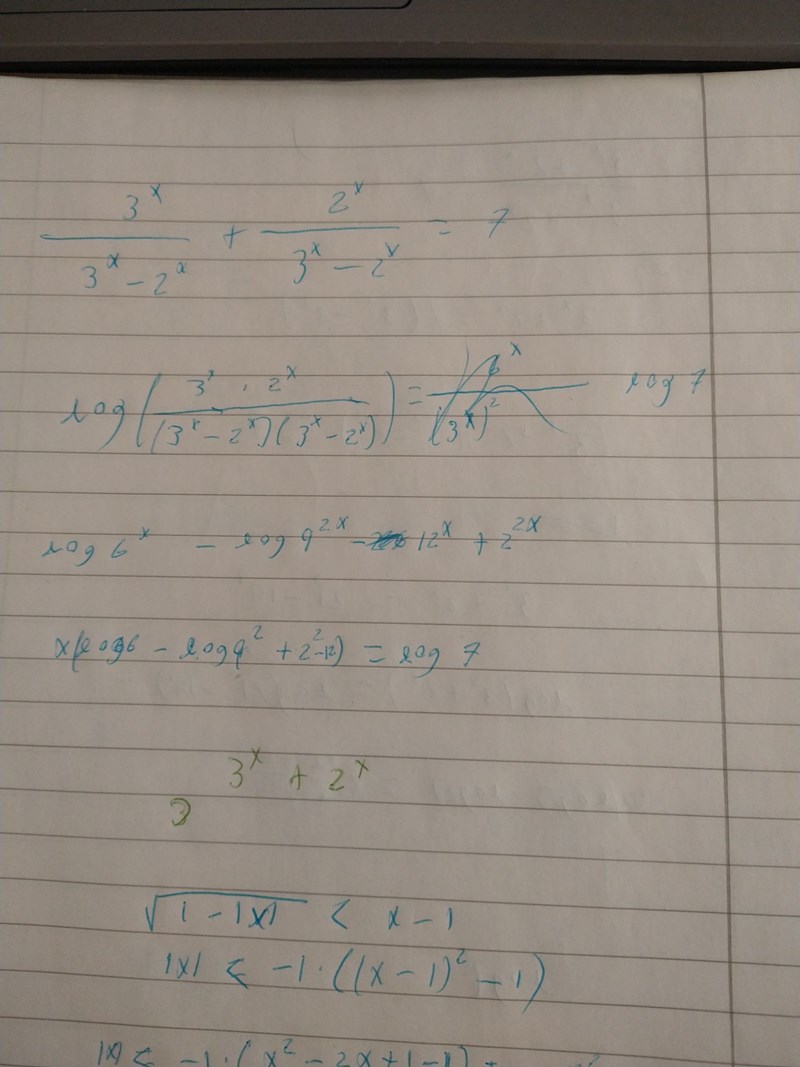 3^x / (3^x - 2^x) + 2^x / (3^x - 2^x) = 7
log(3^x · 2^x / ((3^x - 2^x)(3^x - 2^x))) = 6^x / (3^x)^2 log 7
log 6^x - log 9^2x - 12^x + 2^2x
x(log6 - log9^2 + 2^2 -12) = log 7
3^x + 2^x
3
√(1 - |x|) < x - 1
|x| < -1 · ((x - 1)^2 - 1)
|x| < -1 · (x^2 - 2x + 1 - 1)